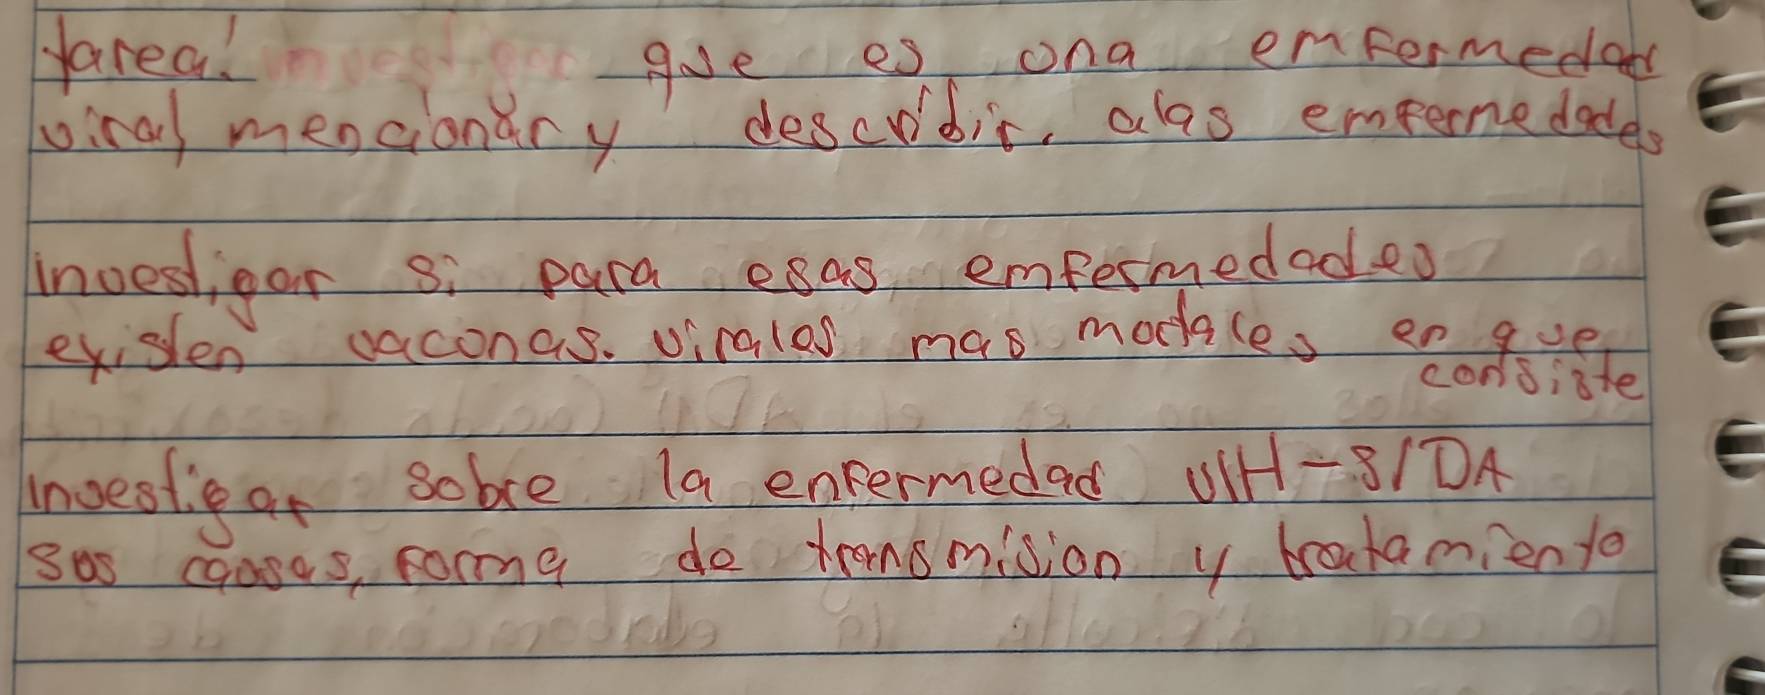 tarea! investigar que es una emfermedad
viral mencionar y describir. alas emfermedades
investigar si para esas emfermedades
existen vacunas. virales mas mortales en que
consiste
investigar sobre la enfermedad VIH-SIDA
sus causas, forma de transmision y tratamiento